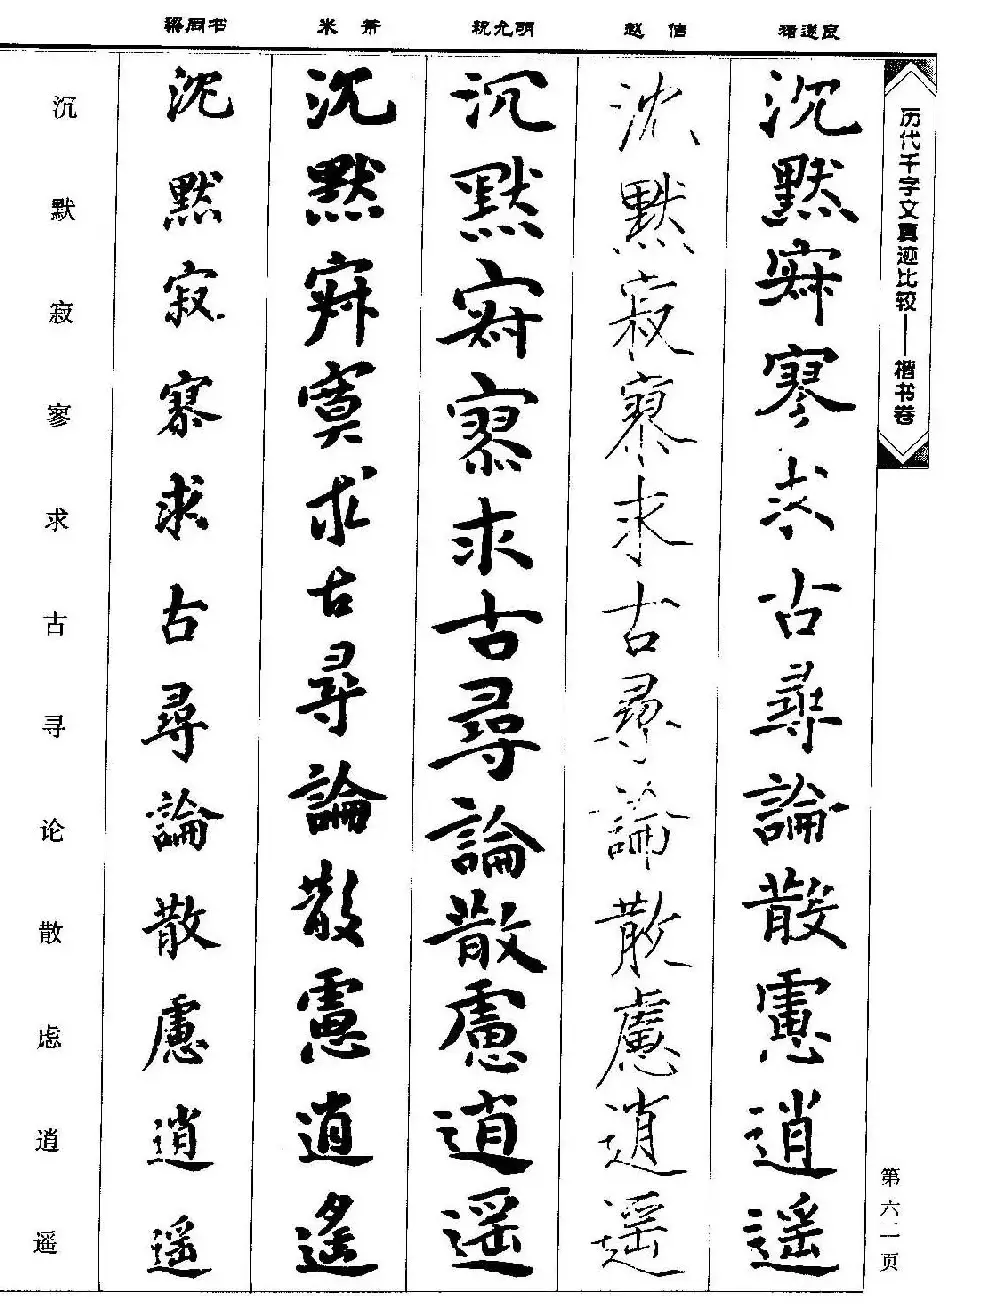 历代千字文真迹比较——楷书卷
第六二页
褚遂良
沉默寂寥求古尋論散慮逍遥
赵佶
沉默寂寥求古尋論散慮逍遥
祝允明
沉默寂寥求古尋論散慮逍遥
米芾
沉默寂寞求古尋論散慮逍遥
梁同书
沉默寂寥求古尋論散慮逍遥
沉默寂寥求古寻论散虑逍遥